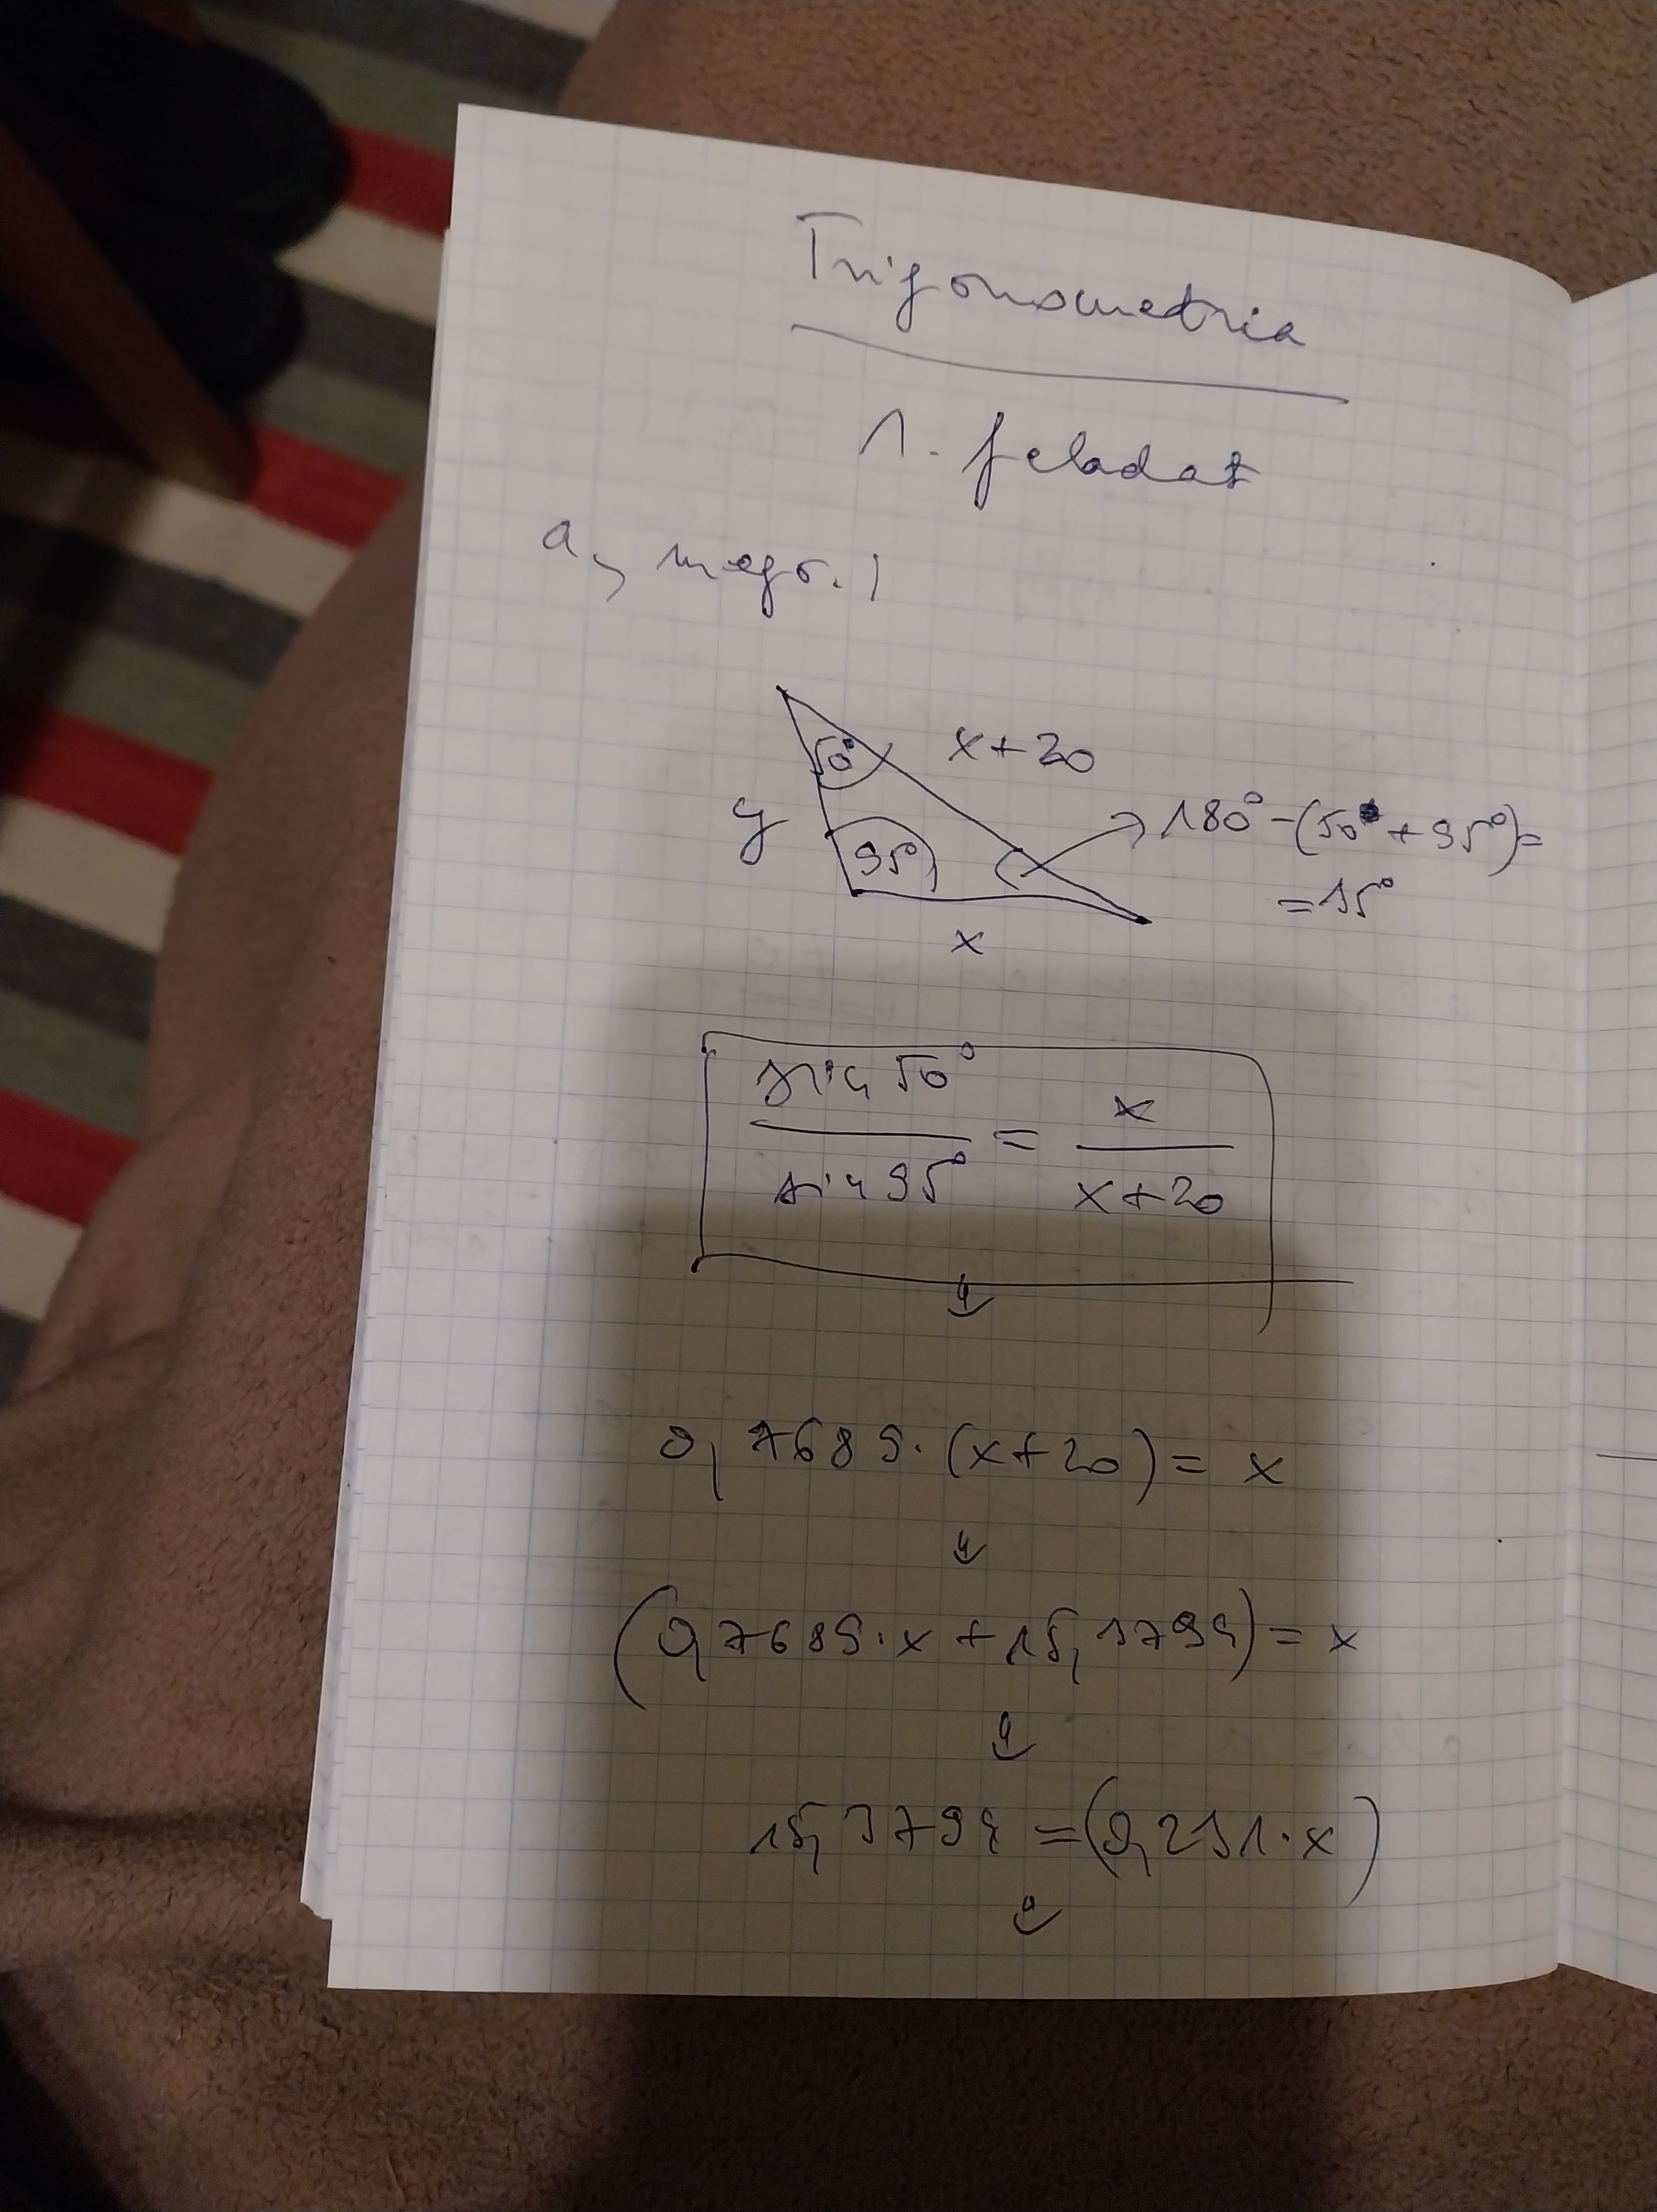 Trigonometria
1. feladat
a, mego.!
50°
x+20
y
95°
180°-(50°+95°)=
=35°
x
sin 50°
sin 95°
=
x
x+20
0,7689·(x+20)=x
(0,7689·x+15,3794)=x
15,3794=(0,231·x)